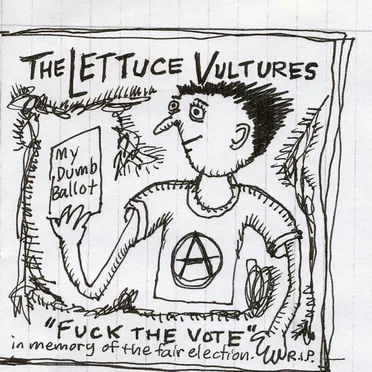 THE LETTUCE VULTURES
My
Dumb
Ballot
A
"FUCK THE VOTE"
in memory of the fair election. R.I.P.